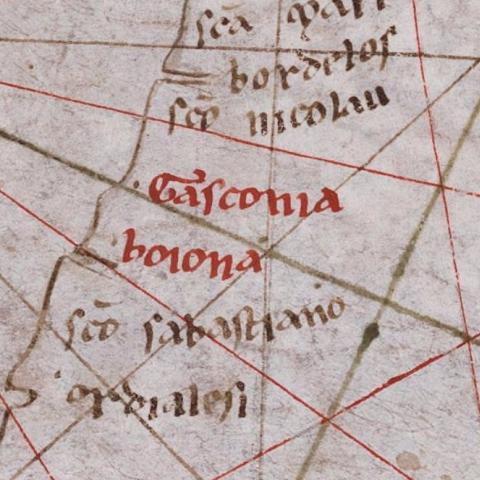 scā mari
bordelos
scō nicolau
Gāsconia
boiona
scō sabastiano
ordialesi